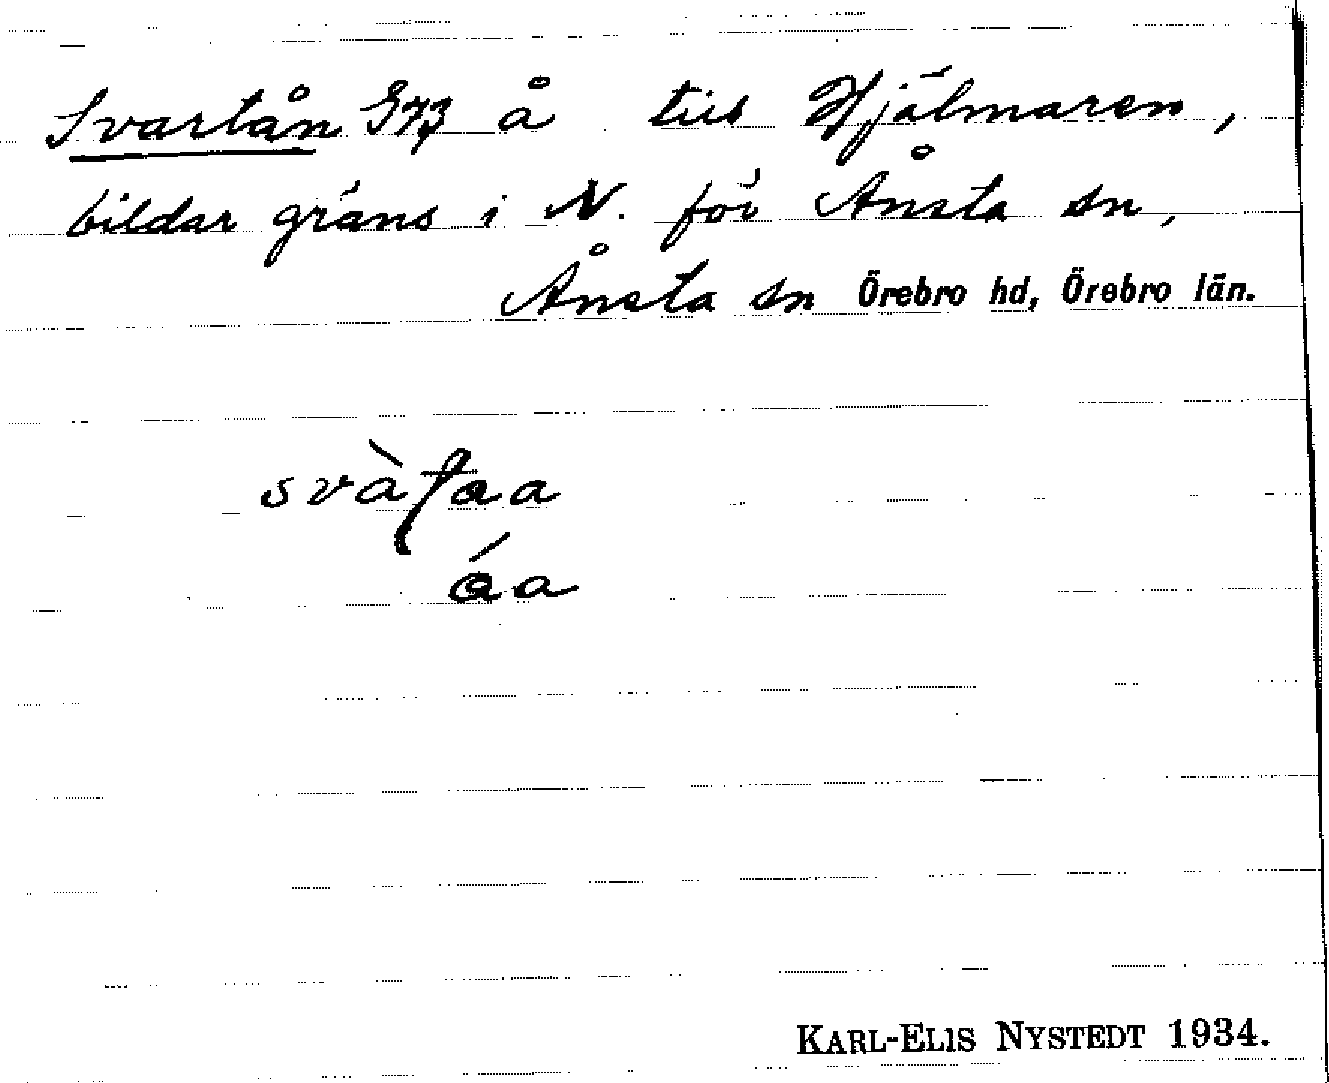 Svartån G43 å till Hjälmaren,
bildar gräns i N. för Ånsta sn,
Ånsta sn Örebro hd, Örebro län.
áa
KARL-ELIS NYSTEDT 1934.